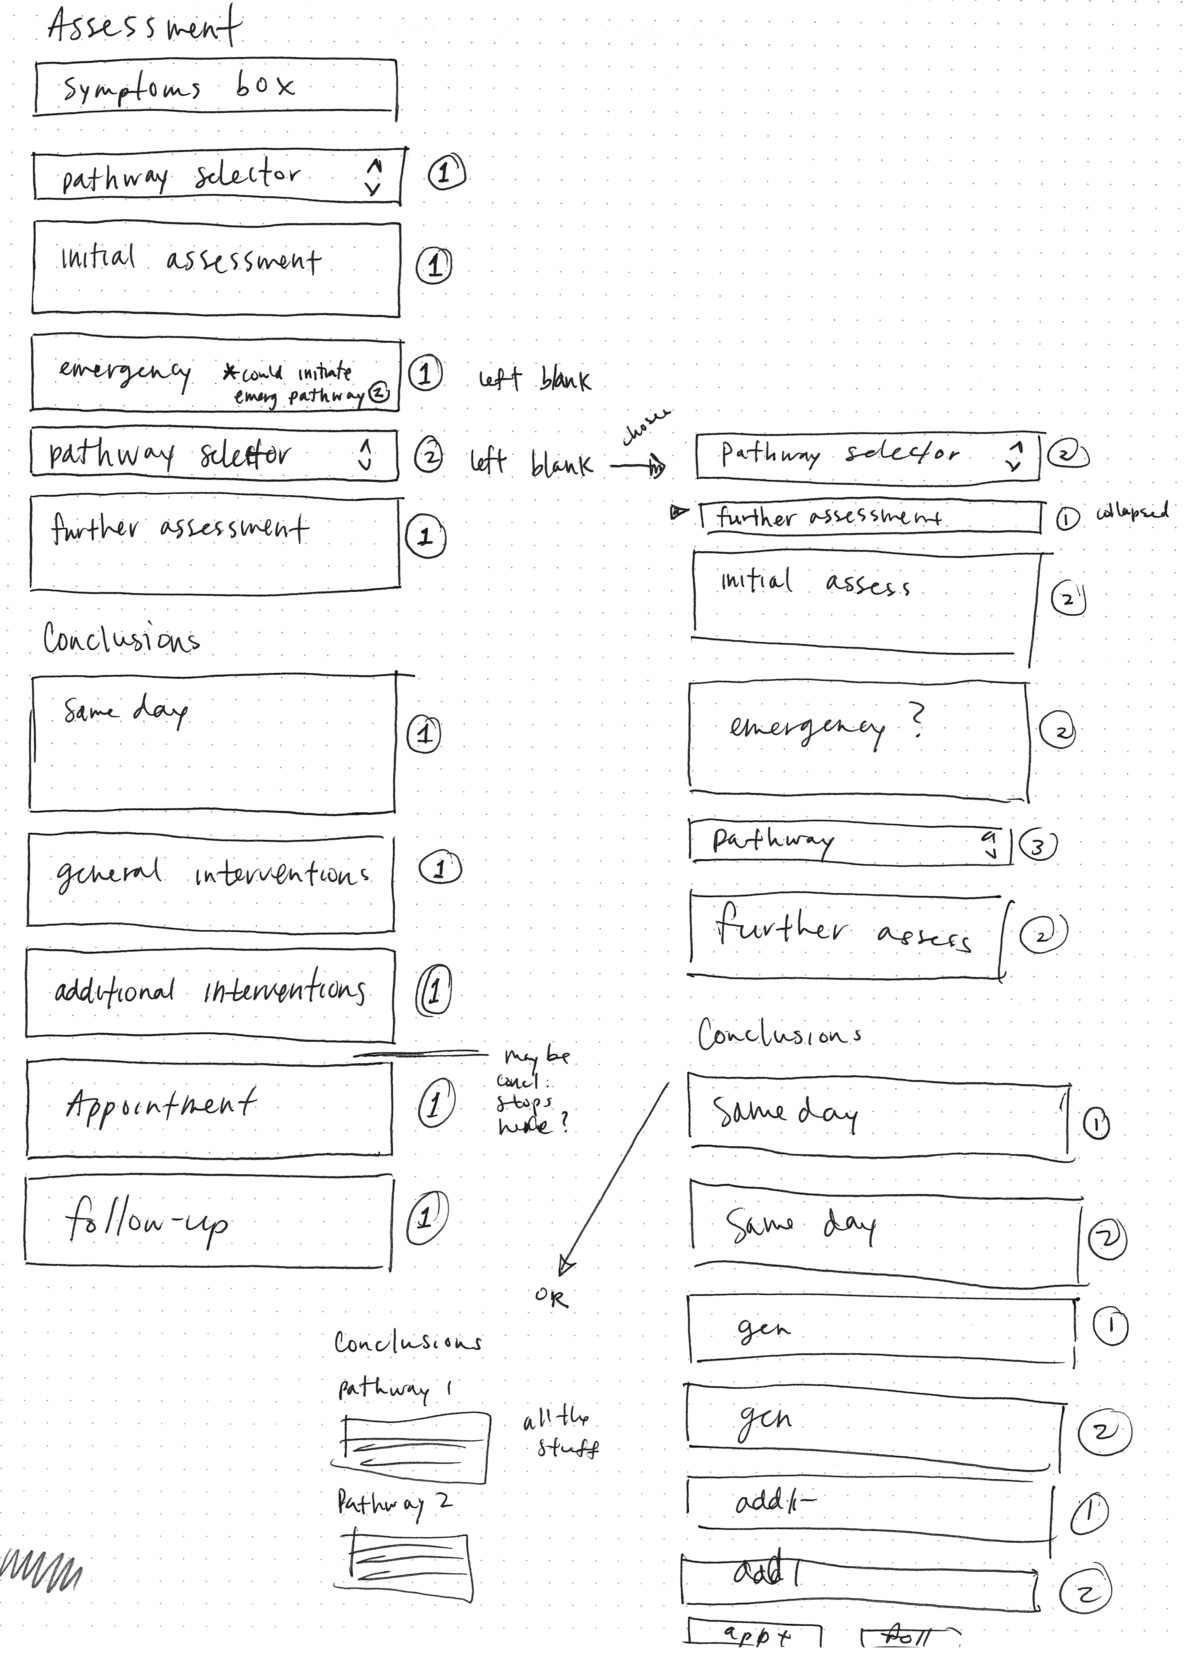 Assessment
symptoms box
pathway selector 1
initial assessment 1
emergency *could initiate 1 left blank
emerg pathway 2
pathway selector 2 left blank
further assessment 1
Conclusions
same day 1
general interventions 1
additional interventions 1
maybe
concl.
stops
here?
Appointment 1
follow-up 1
chosen
pathway selector 2
further assessment 1 collapsed
initial assess 2
emergency? 2
pathway 3
further assess 2
Conclusions
same day 1
same day 2
gen 1
gen 2
add'l 1
add'l 2
appt foll
OR
Conclusions
pathway 1
all the
stuff
Pathway 2